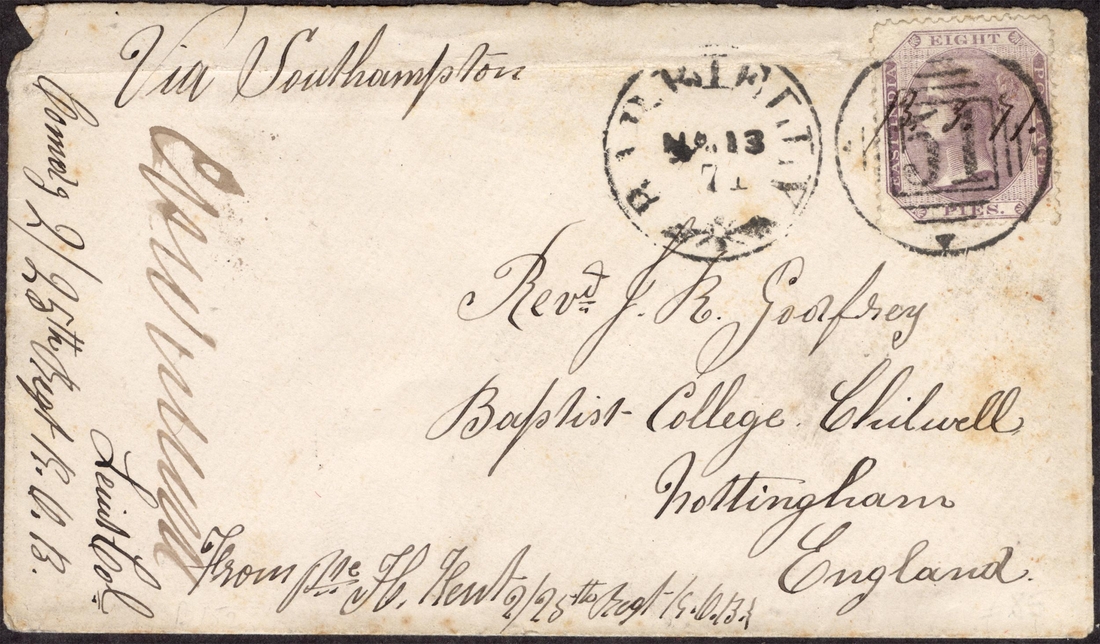 Via Southampton
EIGHT
EAST INDIA
PIES.
13. 3. 71.
RAWUL
MA. 13
71
Revd. J. R. Godfrey
Baptist College, Chilwell,
Nottingham
England.
From pte H. Kent 2/25th Regt K.O.B.
Comg 2/25th Regt K.O.B.
Leiut Col